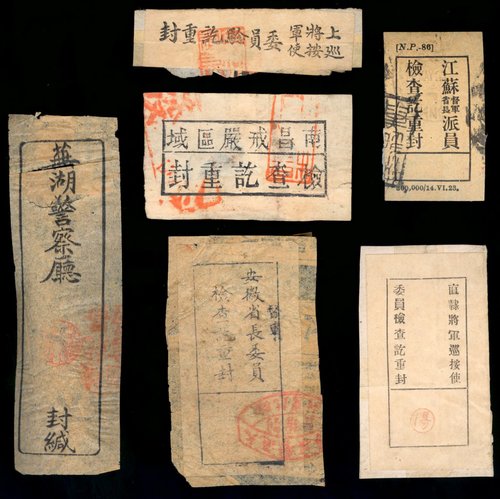 上將軍
巡按使
委員驗訖重封
[N.P.-86]
江蘇督軍省長派員
檢查訖重封
260,000/14.VI.23.
南昌戒嚴區域
檢查訖重封
蕪湖警察廳
封緘
安徽省長委員
檢查訖重封
直隸將軍巡按使
委員檢查訖重封